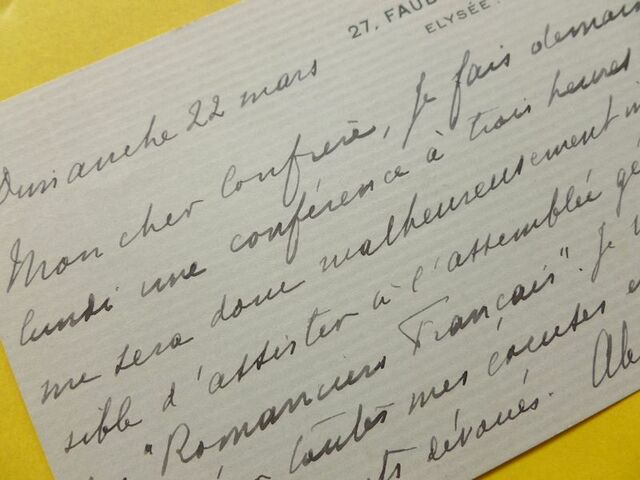 27, FAUB
ELYSÉE
Dimanche 22 mars
Mon cher Confrère, je fais demain
lundi une conférence à trois heures
me sera donc malheureusement
sible d'assister à l'assemblée gé
"Romanciers Français". Je
toutes mes excuses
dévoués.